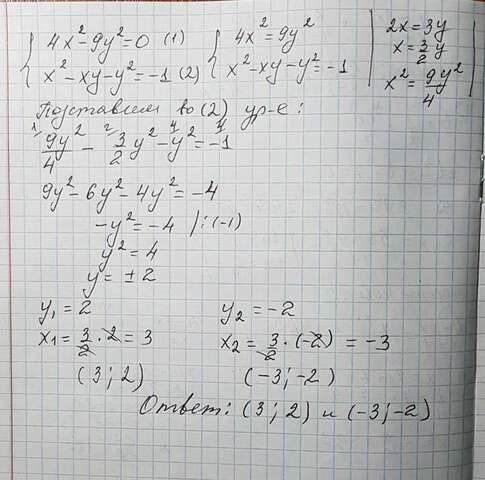 4x² - 9y² = 0 (1)
x² - xy - y² = -1 (2)
4x² = 9y²
x² - xy - y² = -1
2x = 3y
x = 3/2 y
x² = 9y²/4
Подставим во (2) ур-е:
9y²/4 - 3/2 y² - y² = -1
9y² - 6y² - 4y² = -4
-y² = -4 |:(-1)
y² = 4
y = ± 2
y₁ = 2
x₁ = 3/2 · 2 = 3
(3; 2)
y₂ = -2
x₂ = 3/2 · (-2) = -3
(-3; -2)
Ответ: (3; 2) и (-3; -2)